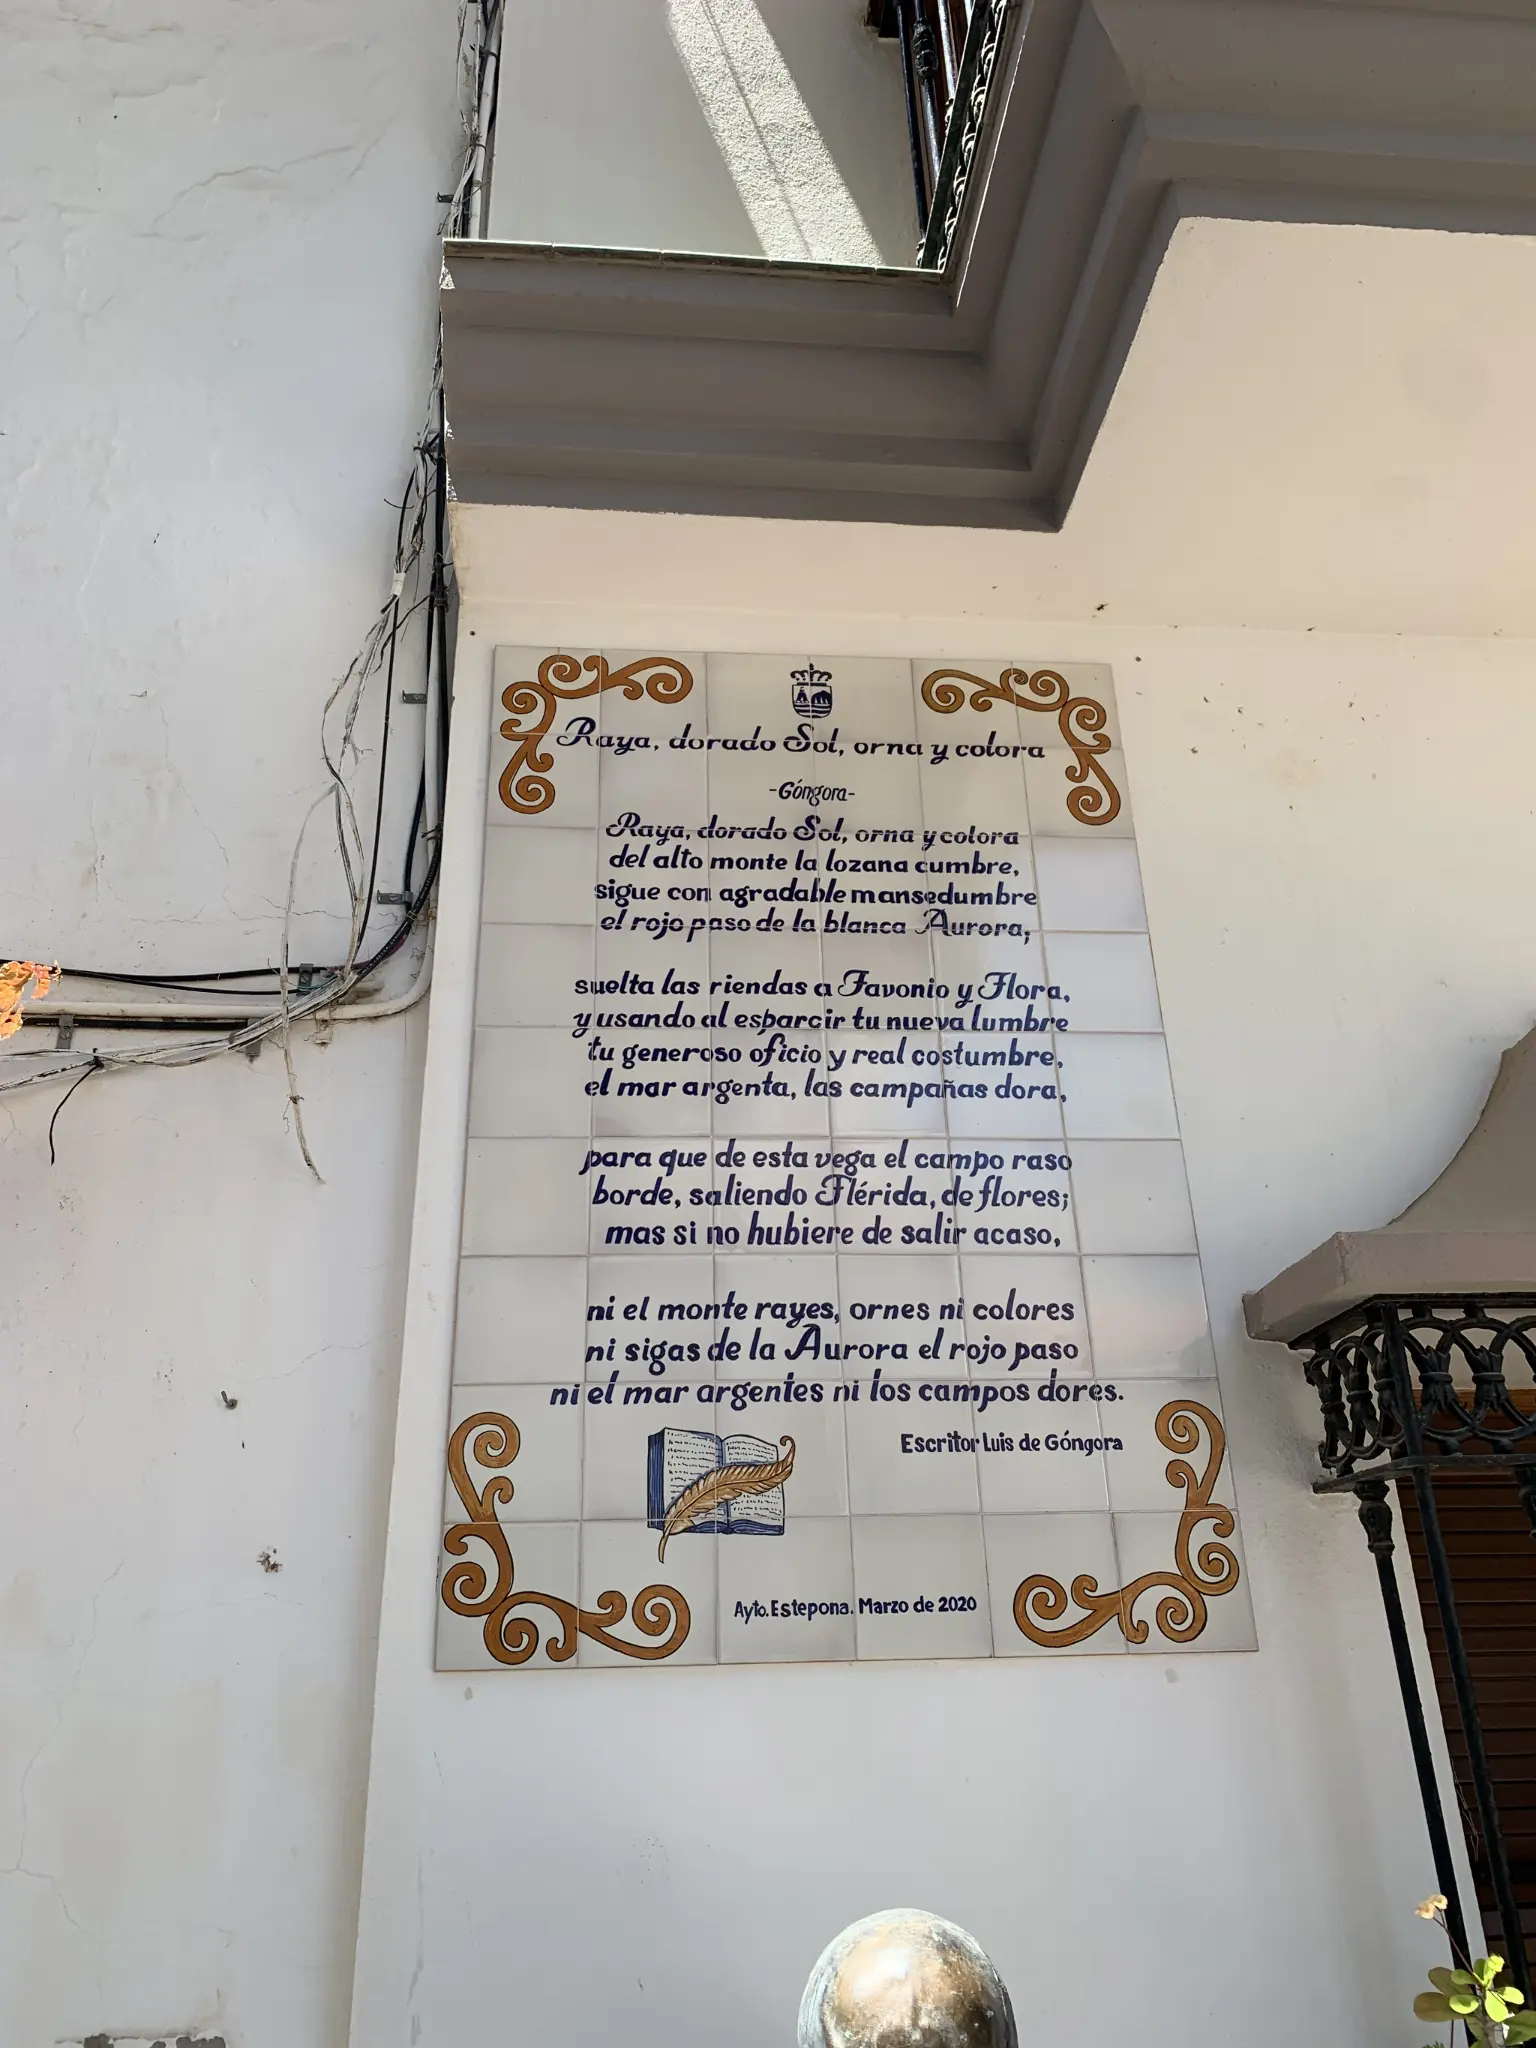 Raya, dorado Sol, orna y colora
-Góngora-
Raya, dorado Sol, orna y colora
del alto monte la lozana cumbre,
sigue con agradable mansedumbre
el rojo paso de la blanca Aurora;
suelta las riendas a Favonio y Flora,
y usando al esparcir tu nueva lumbre
tu generoso oficio y real costumbre,
el mar argenta, las campañas dora,
para que de esta vega el campo raso
borde, saliendo Flérida, de flores;
mas si no hubiere de salir acaso,
ni el monte rayes, ornes ni colores
ni sigas de la Aurora el rojo paso
ni el mar argentes ni los campos dores.
Escritor Luis de Góngora
Ayto. Estepona. Marzo de 2020